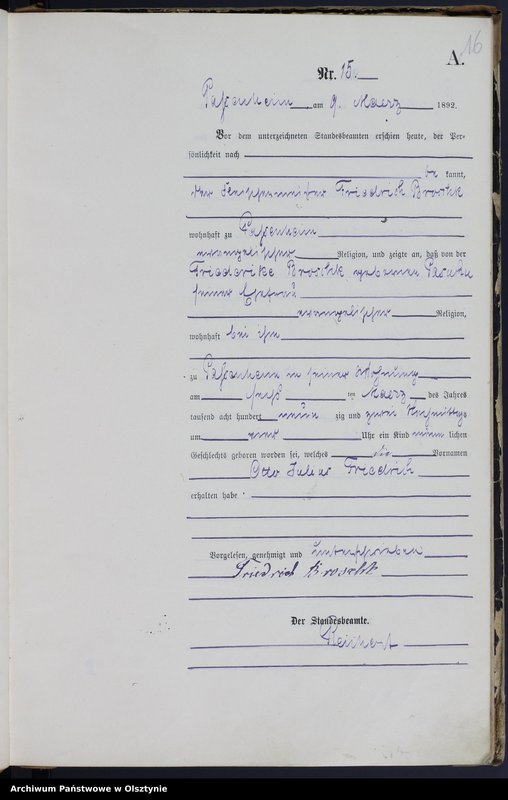 16
A.
Nr. 15.
Passenheim am 9. Maerz 1892.
Vor dem unterzeichneten Standesbeamten erschien heute, der Per-
sönlichkeit nach
be kannt,
der Friedrich Broschk
wohnhaft zu Passenheim
evangelischer Religion, und zeigte an, daß von der
Friederike Broschk, geborenen
seiner Ehefrau
evangelischer Religion,
wohnhaft bei ihm
zu Passenheim in seiner Wohnung
am sechs ten Maerz des Jahres
tausend acht hundert neun zig und zwei Nachmittags
um vier Uhr ein Kind männ lichen
Geschlechts geboren worden sei, welches die Vornamen
Otto Julius Friedrich
erhalten habe
Vorgelesen, genehmigt und unterschrieben
Friedrich Broschk
Der Standesbeamte.
Reichert
Archiwum Państwowe w Olsztynie